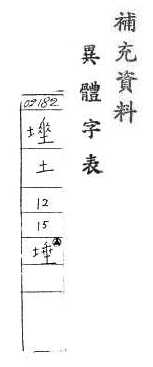 補充資料
異體字表
02182
土
12
15